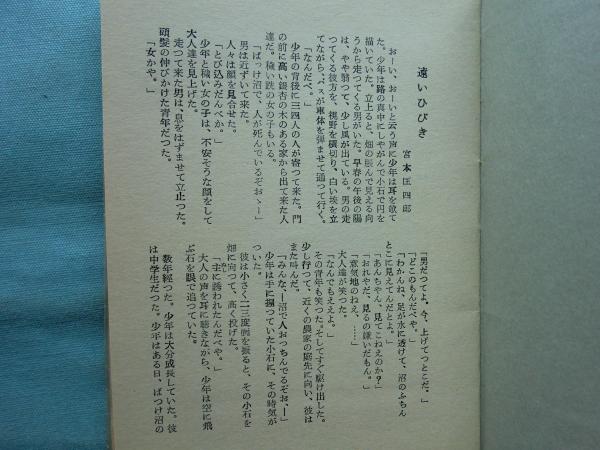 遠いひびき
宮本匡四郎
おーい、おーいと云う声に少年は耳を敧て
た。少年は路の真中にしやがんで小石で円を
描いていた。立上ると、畑の眼んで見える向
うから走つてくる男がいた。早春の午後の陽
は、やや翳つて、少し風が出ている。男の走
つてくる彼方を、視野を横切り、白い埃を立
てながら、バスが車体を弾ませて通つて行く。
「なんだべ。」
少年の背後に三四人の人が寄つて来た。門
の前に高い銀杏の木のある家から出て来た人
達だ。穢い跣の女の子もいる。
「ばつけ沼で、人が死んでいるぞおゝー」
男は近ずいて来た。
人々は顔を見合せた。
「とび込みだんべか。」
少年と穢い女の子は、不安そうな顔をして
大人達を見上げた。
走つて来た男は、息をはずませて立止つた。
頭髪の伸びかけた青年だつた。
「女かや。」
「男だつてよ、今、上げてつとこだ。」
「どこのもんだべや。」
「わかんね、足が水に透けて、沼のふちん
とこに見えてんだとよ。」
「あんちやん、見てこねえのか？」
「おれやだ、見るの嫌いだもん。」
「意気地のねえ、……」
大人達が笑つた。
「なんでもええよ。」
その青年も笑つた。そしてすぐ駆け出した。
少し行つて、近くの農家の庭先に向い、彼は
また叫んだ。
「みんな、ー沼で人おつちんでるぞお、ー」
少年は手に握つていた小石に、その時気が
ついた。
彼は小さく二三度腕を振ると、その小石を
畑に向つて、高く投げた。
「主に誘われたんだべや。」
大人の声を耳に聴きながら、少年は空に飛
ぶ石を眼で追つていた。
数年経つた。少年は大分成長していた。彼
は中学生だつた。少年はある日、ばつけ沼の